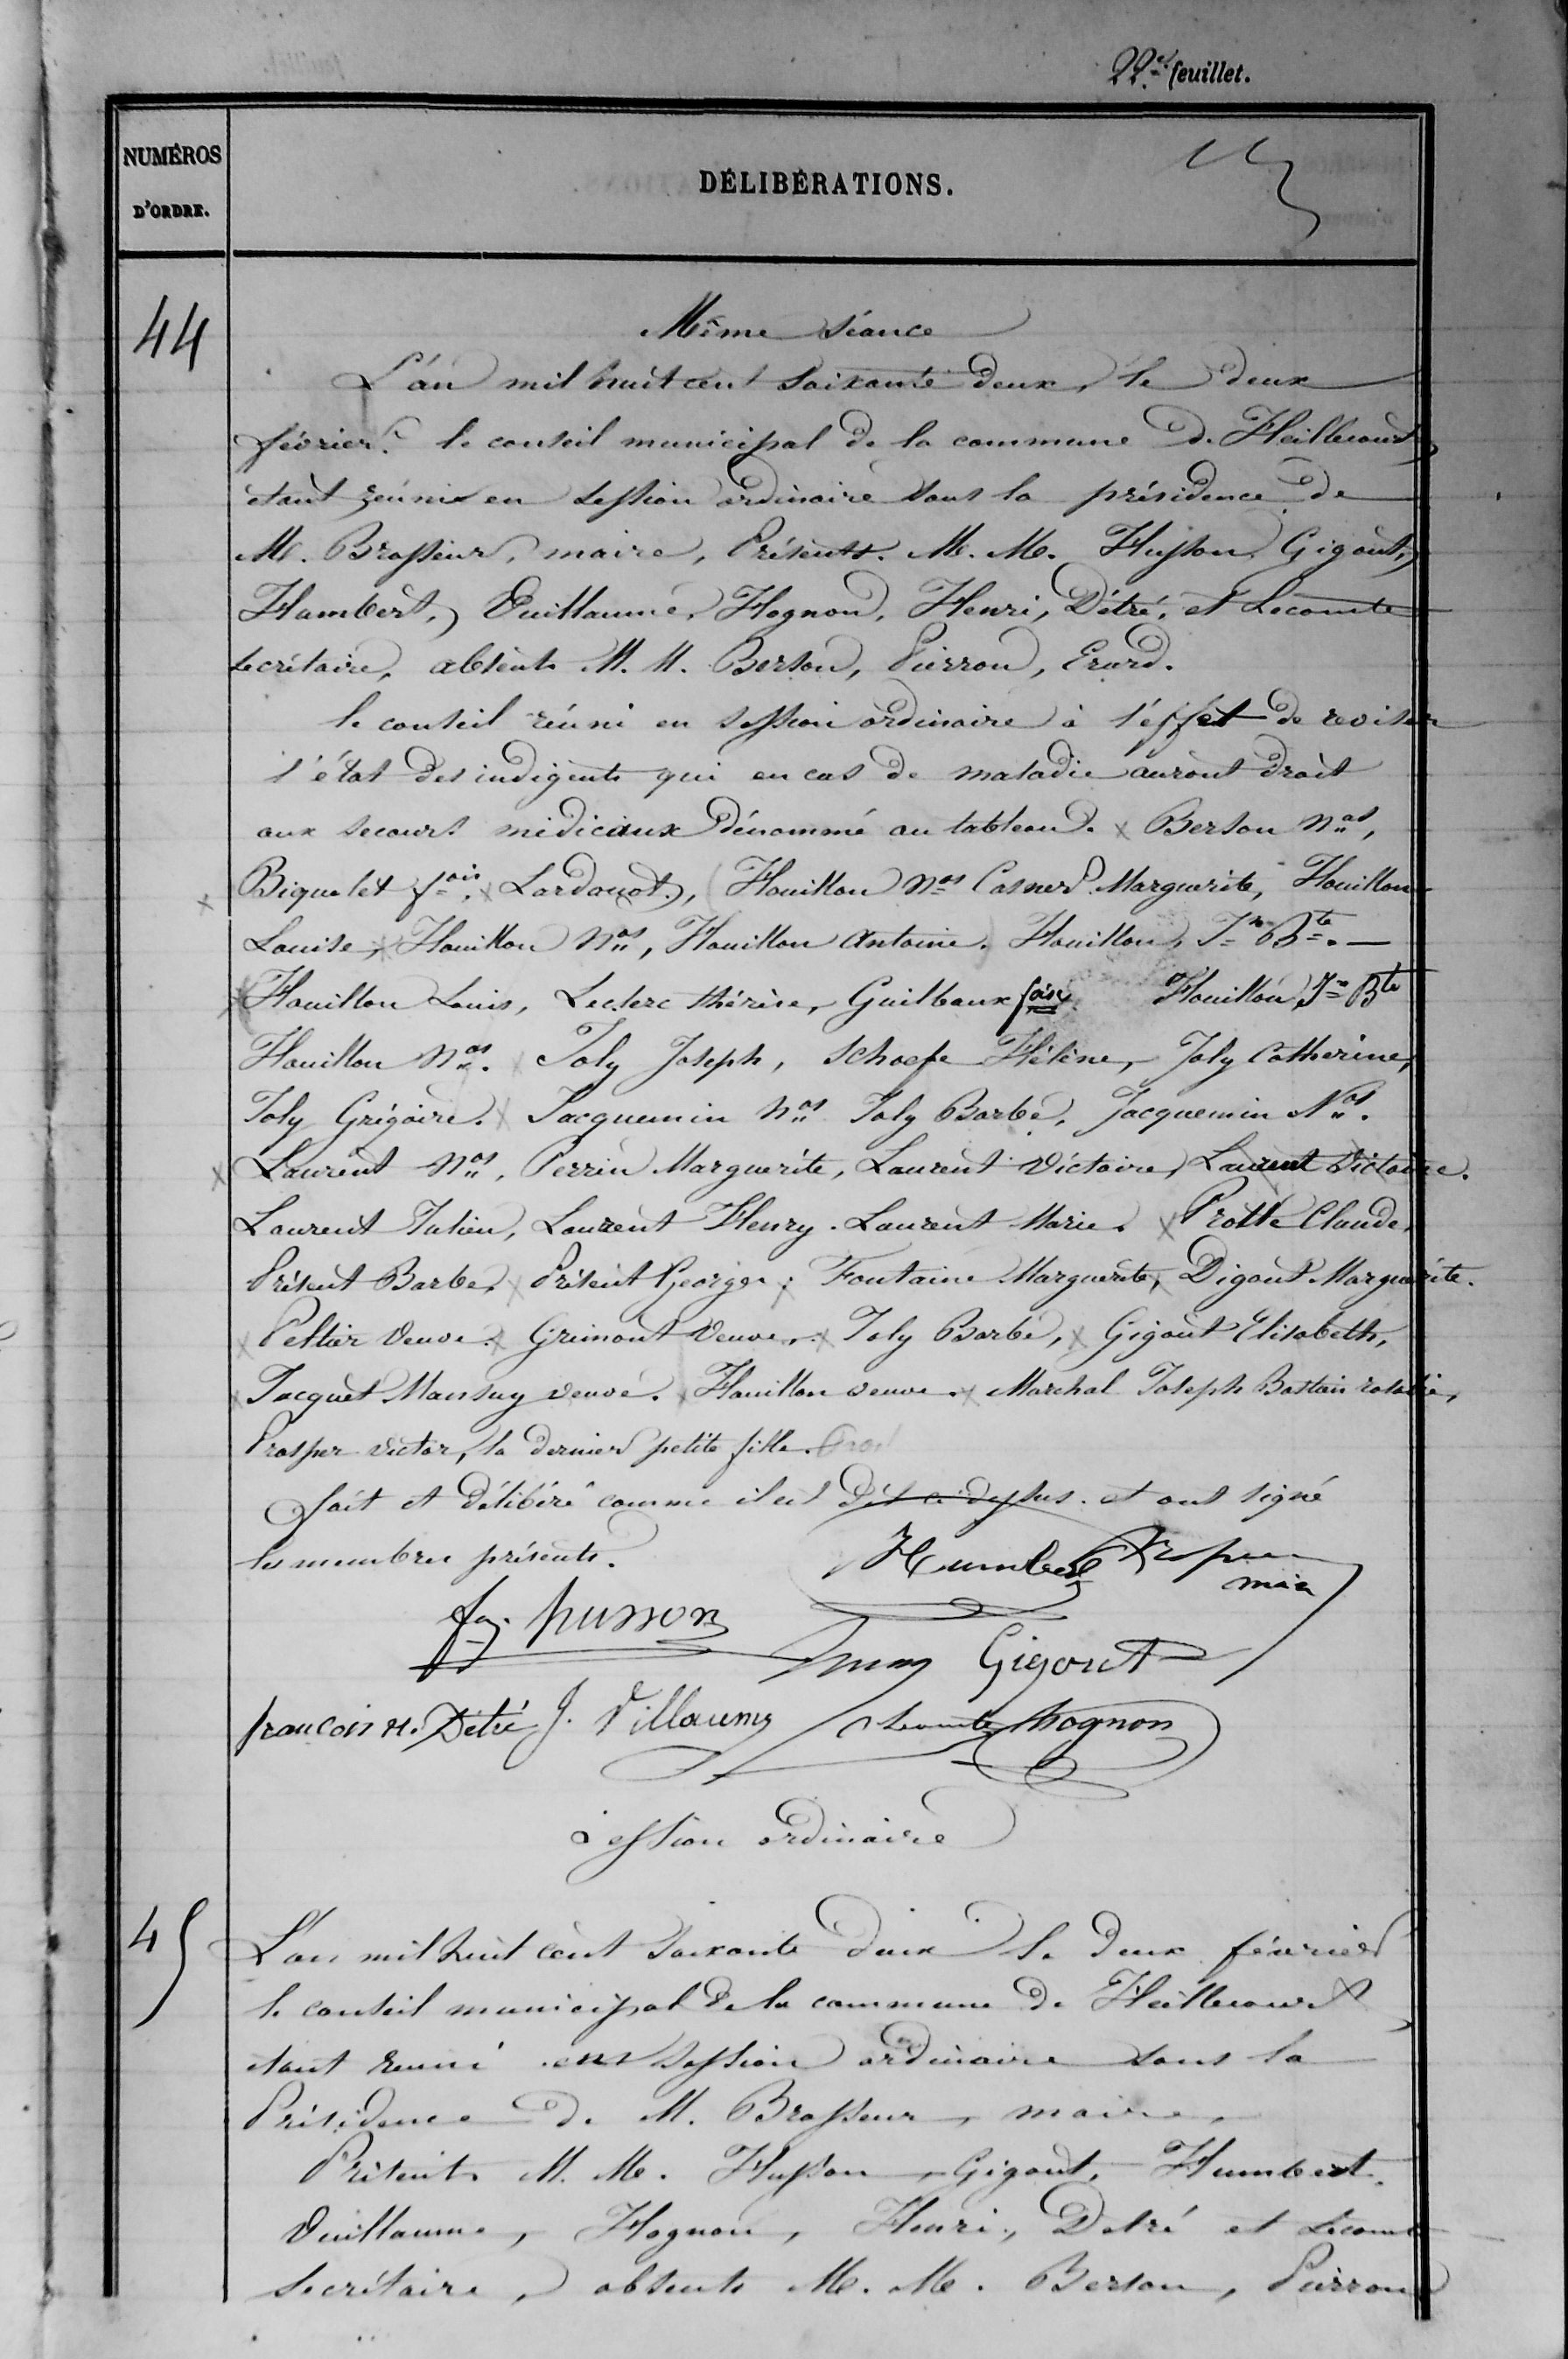 22.e feuillet.
NUMÉROS
D'ORDRE.
DÉLIBÉRATIONS.
44
Même séance
L'an mil huit cent soixante deux, le deux
février. le conseil municipal de la commune de Heillecourt
étant réunis en session ordinaire sous la présidence de
M. Brasseur, maire, Présents. M. M. Husson, Gigout,
Humbert, Vuillaume, Hognon, Henri, Détré, et Lecomte
secrétaire, absents M. M. Berson, Pierron, Erard.
le conseil réuni en session ordinaire à l'effet de reviser
l'état des indigents qui en cas de maladie auront droit
aux secours médicaux dénommé au tableau. x Berson Nas,
x Biquelet fois, x Lardouot, Houillon Nas Casner Marguerite, Houillon
Louise, x Houillon Nas, Houillon Antoine. Houillon, Jn Bte. —
x Houillon Louis, Leclerc thérèse, Guilbaux foise Houillon Jn Bte
Houillon Nas. x Joly Joseph, Schoefe Hélène, Joly Catherine,
Joly Grégoire. x Jacquemin Nas Joly Barbe, Jacquemin Nas.
x Laurent Nas, Perrin Marguerite, Laurent Victoire, Laurent Victoire.
Laurent Julien, Laurent Henry. Laurent Marie. x Protte Claude,
Présent Barbe, x Présent George; x Fontaine Marguerite, x Digout Marguerite.
x Peltier veuve. x Grimont veuve. x Joly Barbe, x Gigout Elisabeth,
x Jacquet Mansuy veuve. x Houillon veuve. x Marchal Joseph Bastien rosalie,
Prosper victor, la dernier petite fille.
fait et délibéré comme il est dit ci dessus. et ont signé
les membres présents.
Humbert
maire
fs. husson
henry Gigout
francois n. Détré J. Villaume Lecomte hognon
session ordinaire
45
L'an mil huit cent soixante deux le deux février
le conseil municipal de la commune de Heillecourt
étant reuni en session ordinaire sous la
Présidence de M. Brasseur, maire,
Présents M. M. Husson, Gigout, Humbert.
Vuillaume, Hognon, Henri, Detré et Lecomte
secrétaire, absents M. M. Berson, Pierron